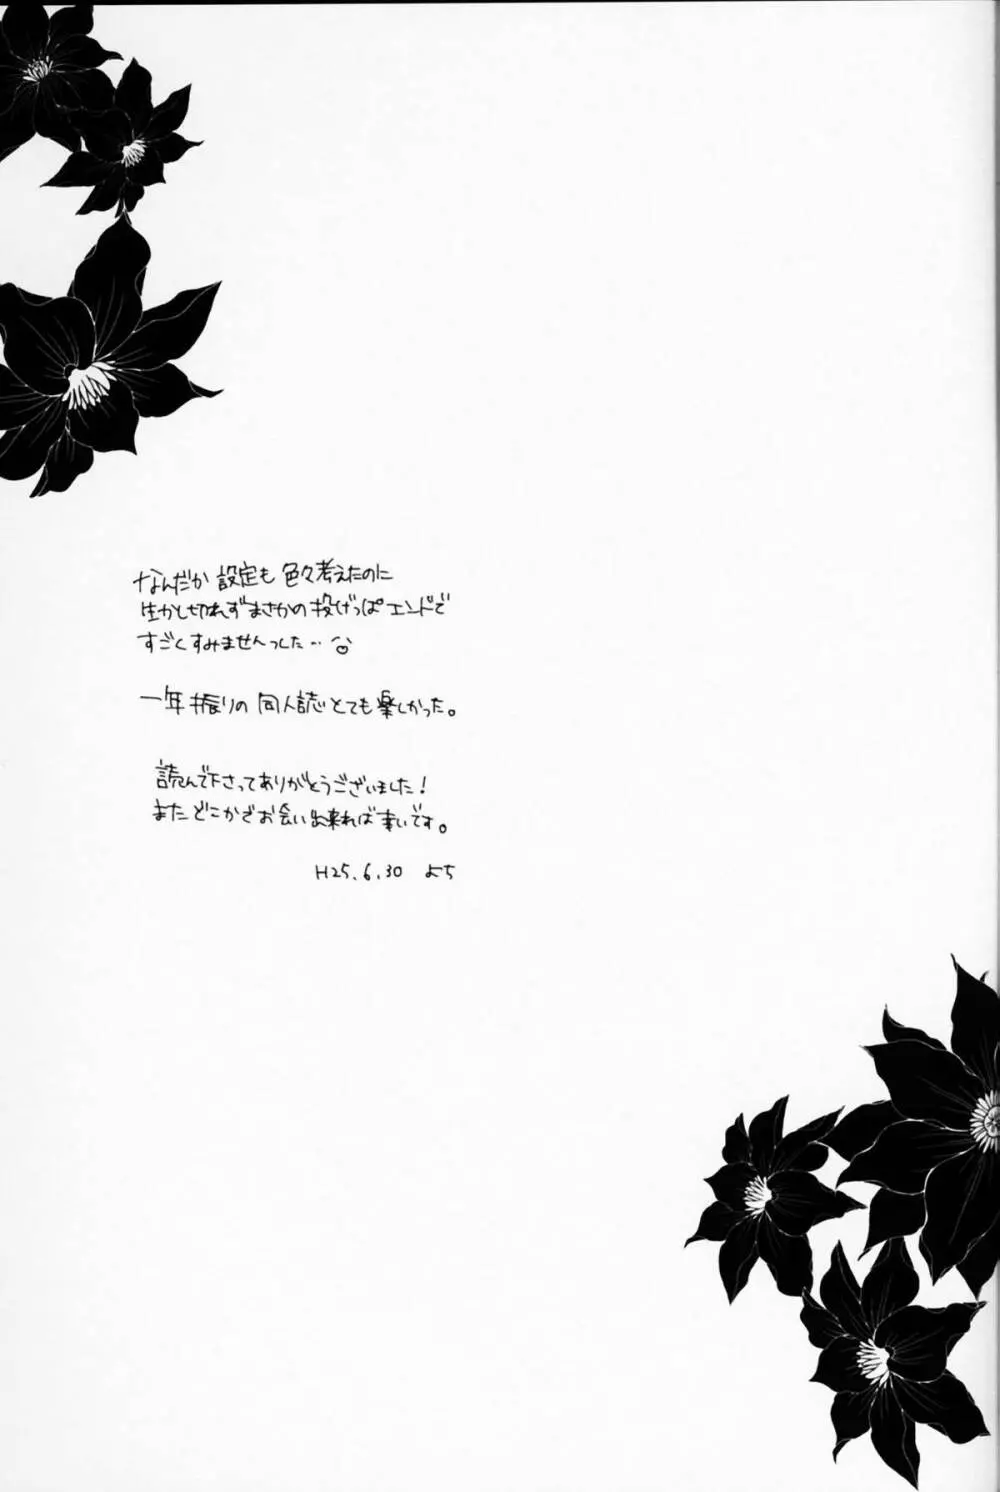 なんだか設定も色々考えたのに
生かし切れずまさかの投げっぱエンドで
すごくすみませんっした…
一年振りの同人誌とても楽しかった。
読んで下さってありがとうございました!
またどこかでお会い出来れば幸いです。
H25.6.30 よち